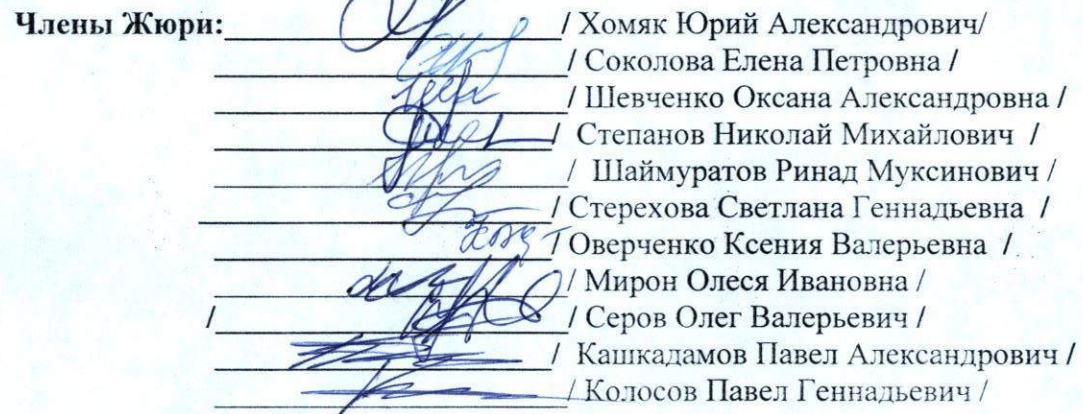 Члены Жюри: / Хомяк Юрий Александрович/
/ Соколова Елена Петровна /
/ Шевченко Оксана Александровна /
/ Степанов Николай Михайлович /
/ Шаймуратов Ринад Муксинович /
/ Стерехова Светлана Геннадьевна /
/ Оверченко Ксения Валерьевна /
/ Мирон Олеся Ивановна /
/ / Серов Олег Валерьевич /
/ Кашкадамов Павел Александрович /
/ Колосов Павел Геннадьевич /